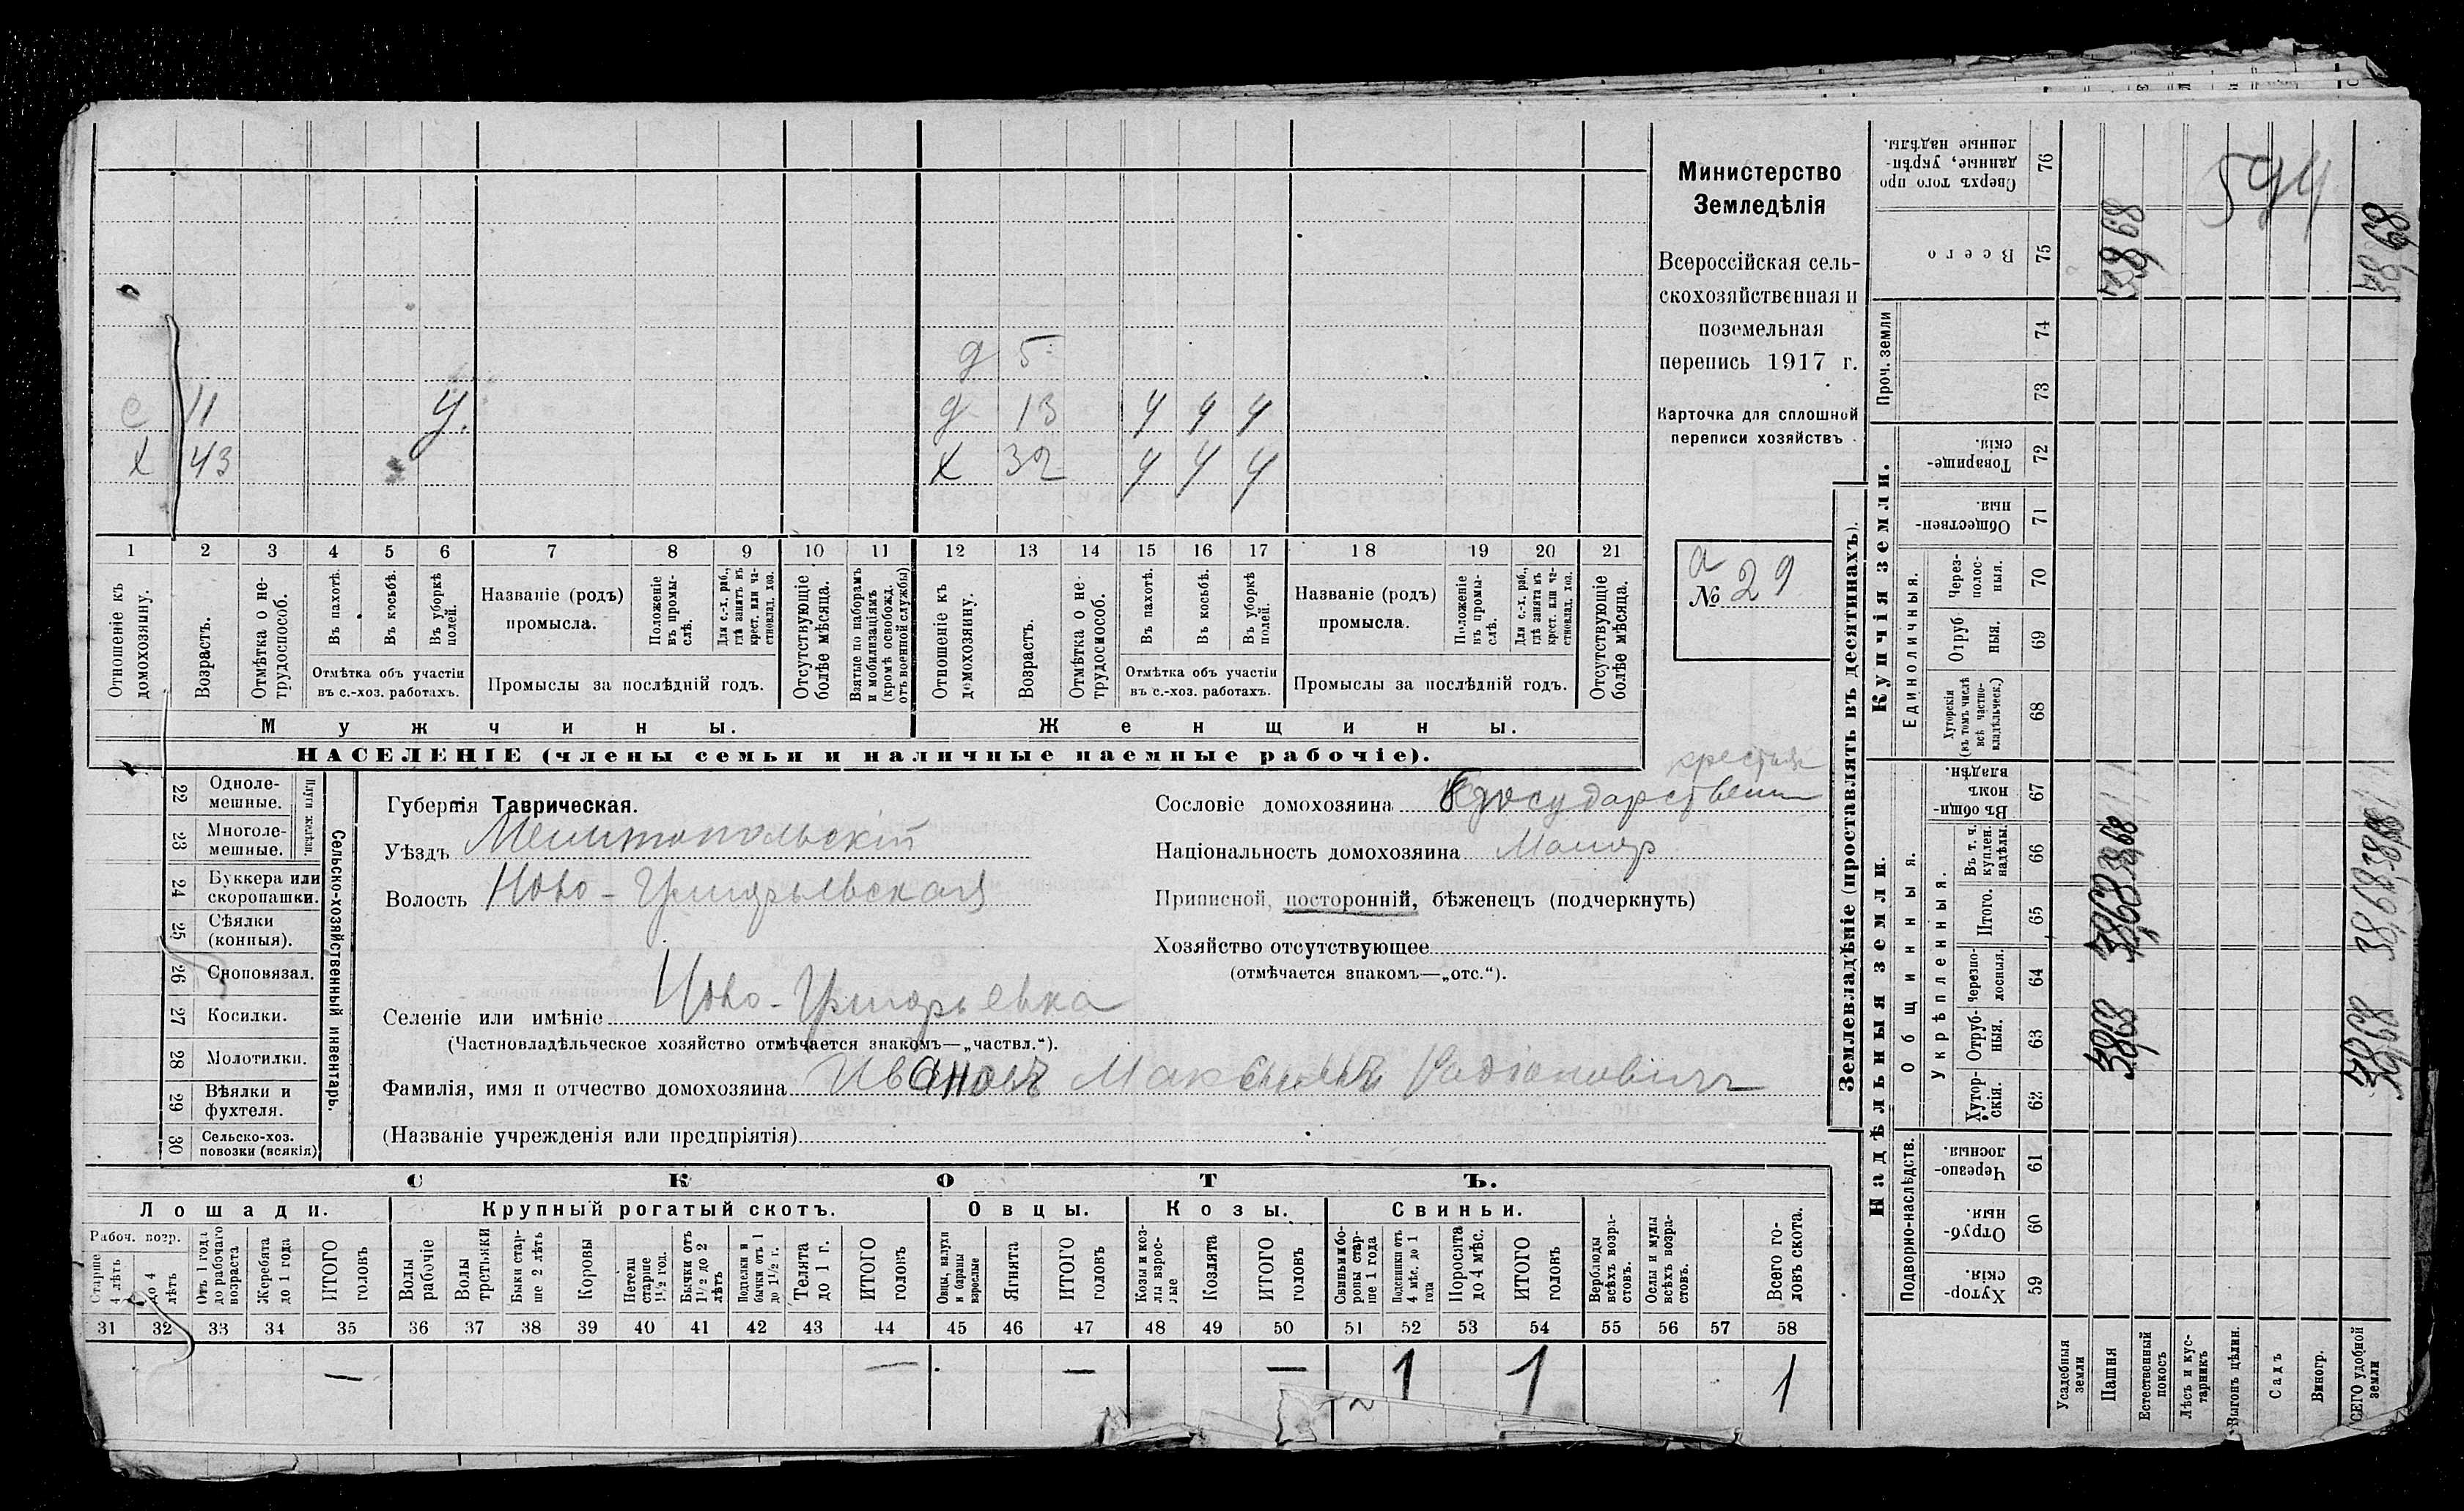 Министерство
Земледѣлія
Всероссійская сель-
скохозяйственная и
поземельная
перепись 1917 г.
Карточка для сплошной
переписи хозяйствъ
а
№ 29
д 5
с 11 У.
д 13 У У У
х 43
х 32 У У У
1 2 3 4 5 6 7 8 9 10 11 12 13 14 15 16 17 18 19 20 21
Отношеніе къ домохозяину.
Возрастъ.
Отмѣтка о не-трудоспособ.
Въ пахотѣ.
Въ косьбѣ.
Въ уборкѣ полей.
Отмѣтка объ участіи
въ с.-хоз. работахъ.
Названіе (родъ)
промысла.
Положеніе въ промы-слѣ.
Для с.-х. раб., гдѣ занятъ въ крест. или ча-стновлад. хоз.
Промыслы за послѣдній годъ.
Отсутствующіе болѣе мѣсяца.
Взятые по наборамъ и мобилизаціямъ (кромѣ освобожд. отъ военной службы)
Отношеніе къ домохозяину.
Возрастъ.
Отмѣтка о не-трудоспособ.
Въ пахотѣ.
Въ косьбѣ.
Въ уборкѣ полей.
Отмѣтка объ участіи
въ с.-хоз. работахъ.
Названіе (родъ)
промысла.
Положеніе въ промы-слѣ.
Для с.-х. раб., гдѣ занята въ крест. или ча-стновлад. хоз.
Промыслы за послѣдній годъ.
Отсутствующіе болѣе мѣсяца.
Мужчины.
Женщины.
НАСЕЛЕНІЕ (члены семьи и наличные наемные рабочіе).
22 Одноле-мешные.
23 Многоле-мешные.
Плуги желѣзн.
24 Буккера или скоропашки.
25 Сѣялки (конныя).
26 Сноповязал.
27 Косилки.
28 Молотилки.
29 Вѣялки и фухтеля.
30 Сельско-хоз. повозки (всякія)
Сельско-хозяйственный инвентарь.
Губернія Таврическая.
Уѣздъ Мелитопольскій
Волость Ново-Григорьевская
Селеніе или имѣніе Ново-Григорьевка
(Частновладѣльческое хозяйство отмѣчается знакомъ—„частвл.“).
Фамилія, имя и отчество домохозяина Ивановъ Максимъ Радіоновичъ
(Названіе учрежденія или предпріятія)
крестьян
Сословіе домохозяина государствен
Національность домохозяина Малор
Приписной, посторонній, бѣженецъ (подчеркнуть)
Хозяйство отсутствующее
(отмѣчается знакомъ—„отс.“).
СКОТЪ.
Лошади.
Крупный рогатый скотъ.
Овцы.
Козы.
Свиньи.
Рабоч. возр.
Старше 4 лѣтъ
до 4 лѣтъ
Отъ 1 года до рабочаго возраста
Жеребята до 1 года
ИТОГО головъ
Волы рабочіе
Волы третьяки
Быки стар-ше 2 лѣтъ
Коровы
Нетели старше 1½ год.
Бычки отъ 1½ до 2 лѣтъ
Подтелки и бычки отъ 1 до 1½ г.
Телята до 1 г.
ИТОГО головъ
Овцы, валухи и бараны взрослые
Ягнята
ИТОГО головъ
Козы и коз-лы взрос-лые
Козлята
ИТОГО головъ
Свиньи и бо-ровы стар-ше 1 года
Подсвинки отъ 4 мѣс. до 1 года
Поросята до 4 мѣс.
ИТОГО головъ
Верблюды всѣхъ возра-стовъ.
Ослы и мулы всѣхъ возра-стовъ.
Всего го-ловъ скота.
31 32 33 34 35 36 37 38 39 40 41 42 43 44 45 46 47 48 49 50 51 52 53 54 55 56 57 58
— — — — 1 1 1
Землевладѣніе (проставлять въ десятинахъ).
Сверхъ того про-данные, укрѣп-ленные надѣлы.
76
594
Всего
75
38,68
38,68
Проч. земли
74
73
Купчія земли.
Товарище-скія.
72
Обществен-ныя
71
Единоличныя.
Через-полос-ныя.
70
Отруб-ныя.
69
Хуторскія (въ томъ числѣ всѣ частно-владѣльческ.)
68
Надѣльныя земли.
Общинныя.
Въ общи-номъ владѣн.
67
Укрѣпленныя.
Въ т. ч. куплен. надѣлы.
66
Итого.
65
Черезпо-лосныя.
64
Отруб-ныя.
63
Хутор-скія.
62
Подворно-наслѣдств.
Черезпо-лосныя.
61
Отруб-ныя.
60
Хутор-скія.
59
Усадебныя земли
Пашня
Естественный покосъ
Лѣсъ и кус-тарникъ
Выгонъ цѣлин.
Садъ
Виногр.
ВСЕГО удобной земли